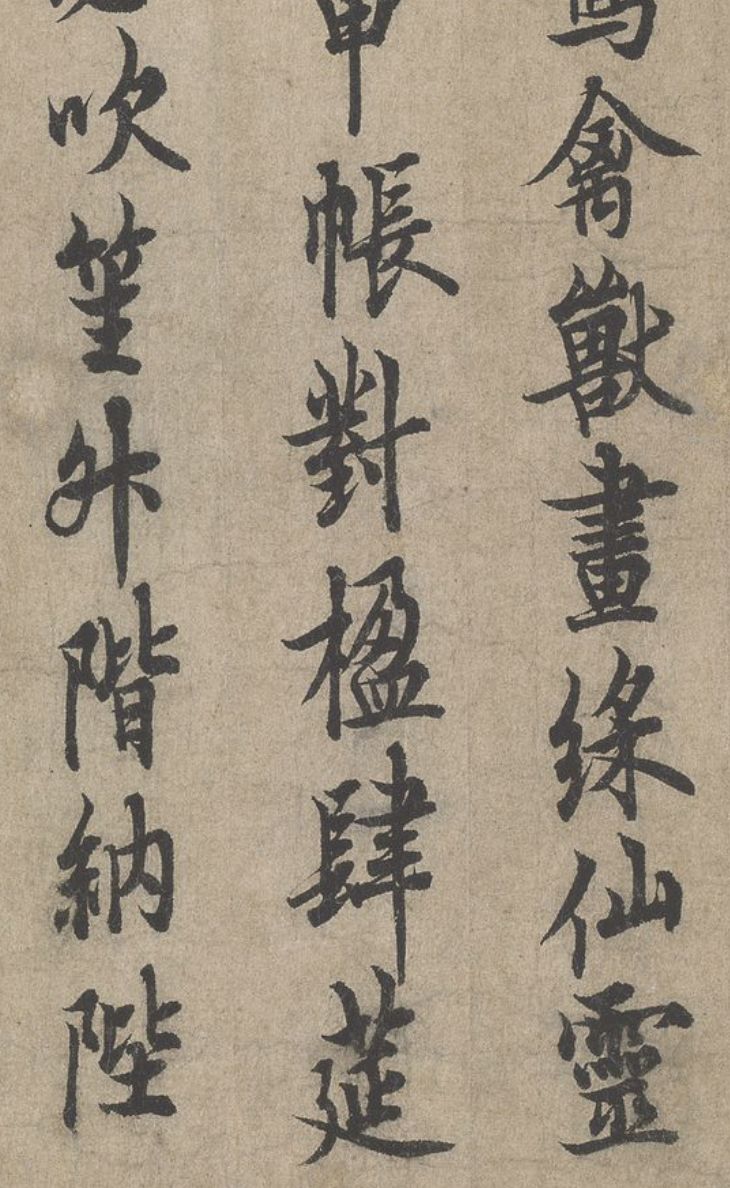 禽獸畫綵仙靈
甲帳對楹肆筵
吹笙升階納陛